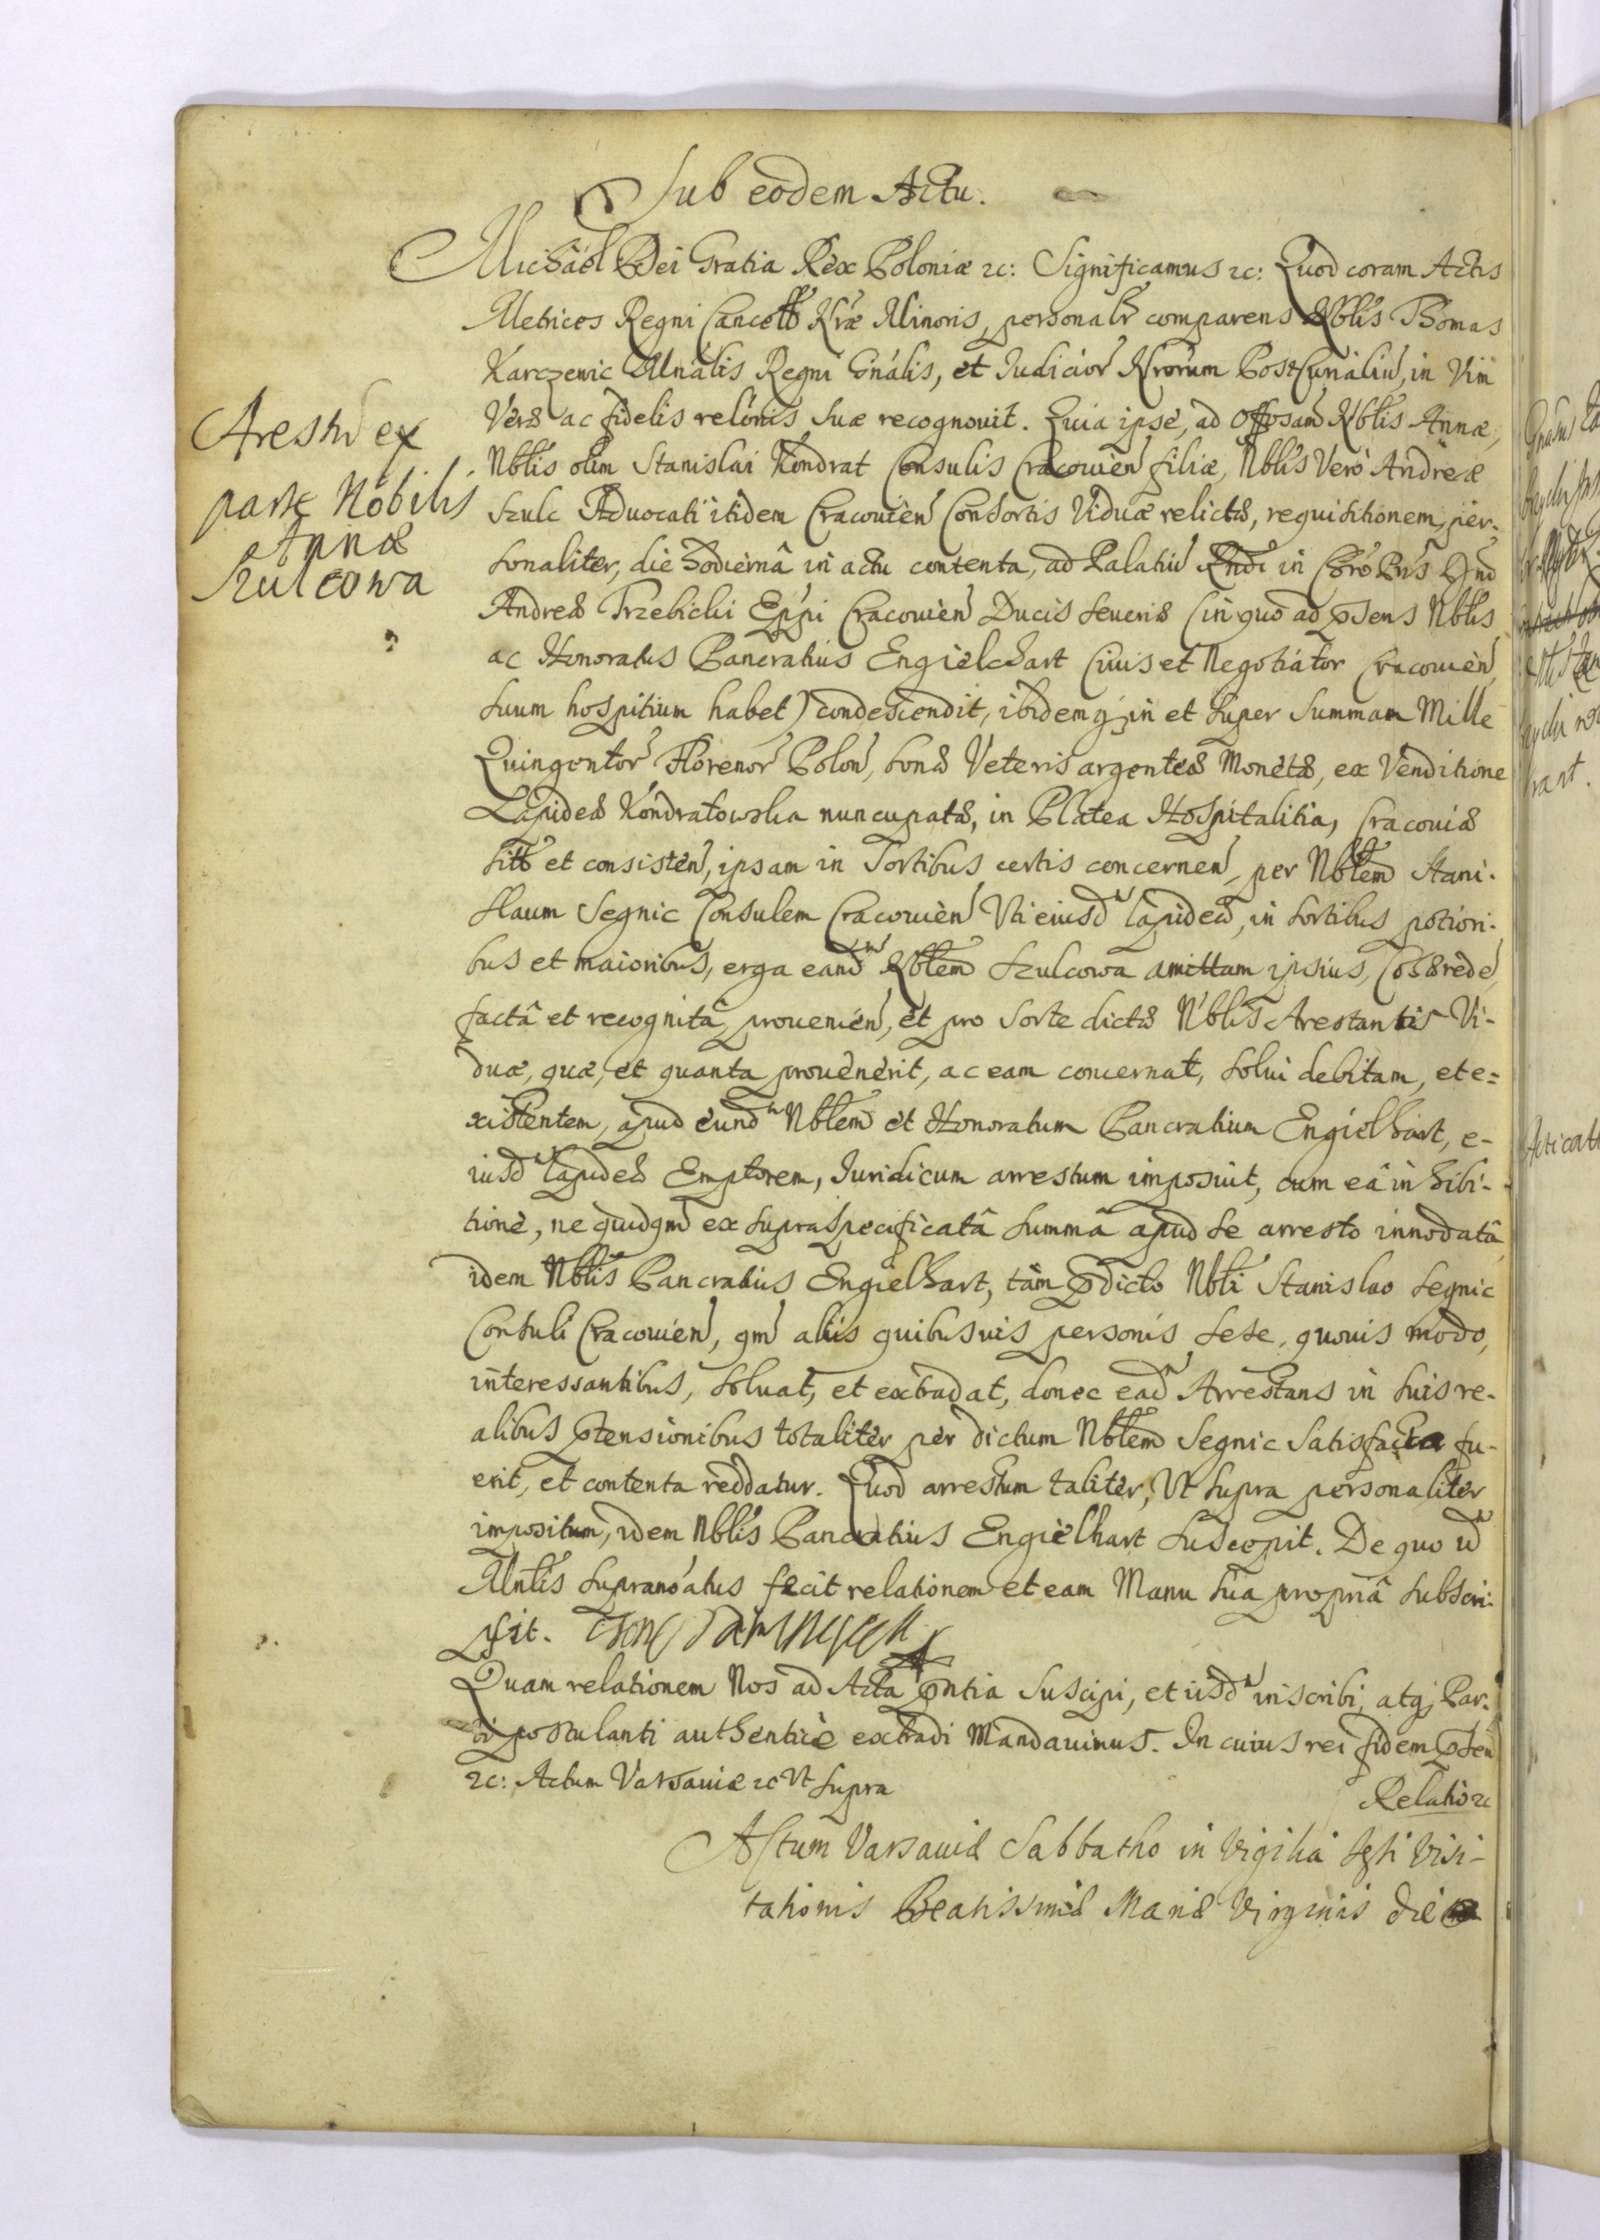 Sub eodem Actu.
Michael Dei Gratia Rex Poloniæ &c: Significamus &c: Quod coram Actis
Metrices Regni Cancell Nræ Minoris, personalr comparens Nblis Thomas
Karczewic Mnälis Regni Gnälis, et Iudicior Nrorum PostCurialiū, in Vim
Veræ ac fidelis relönis suæ recognouit. Quia ipse, ad Offosam Nblis Annæ,
Nblis olim Stanislai Kondrat Consulis Cracouien filiæ, Nblis Vero Andreæ
Szulc Aduocati itidem Cracouien Consortis Viduæ relictæ, requisitionem, per-
sonaliter, die hodiernâ in actu contenta, ad Palatiū Rndi in Chro Pris Dnd
Andreæ Trzebicki Eppi Cracouien Ducis Seueriæ (in quo ad psens Nblis
ac Honoratus Pancratius Engielchart Ciuis et Negotiator Cracouien
suum hospitium habet) condescendit, ibidemq; in et super Summam Mille
Quingentor Florenor Polon, bonæ Veteris argenteæ Monetæ, ex Venditione
Lapideæ Kondratowska nuncupatæ, in Platea Hospitalitia, Cracouiæ
sitæ et consisten, ipsam in Sortibus certis concernen, per Nblem Stani-
slaum Segnic Consulem Cracouien Vti eiusd lapideæ, in sortibus potiori-
bus et maioribus, erga eand Nblem Szulcowa amittam ipsius, Cohærede
factâ et recognitâ, prouenien, et pro sorte dictæ Nblis Arestantis Vi-
duæ, quæ, et quanta prouenerit, ac eam concernat, solui debitam, et e=
xistentem, apud eund Nblem et Honoratum Pancratium Engielhart, e-
iusd lapideæ Emptorem, Iuridicum arrestum imposuit, cum eâ inhibi-
tione, ne quidqm ex supraspecificatâ summâ apud se arresto innodatâ
idem Nblis Pancratius Engielhart, tàm pdicto Nbli Stanislao Segnic
Consuli Cracouien, qm aliis quibusuis personis sese, quouis modo,
interessantibus, soluat, et extradat, donec ead Arrestans in suis re-
alibus ptensionibus totaliter per dictum Nblem Segnic Satisfacta fu-
erit, et contenta reddatur. Quod arrestum taliter, Vt supra personaliter
impositum, idem Nblis Pancratius Engielhart suscepit. De quo id
Mnlis supranoatus fecit relationem et eam Manu sua propriâ subscri-
psit.
Quam relationem Nos ad Acta pntia suscipi, et iisd inscribi, atq; Par-
ti postulanti authentice extradi Mandauimus. In cuius rei fidem psen
&c: Actum Varsauiæ &c Vt supra
Relatio &c
Actum Varsauiæ Sabbatho in Vigilia festi Visi-
tationis Beatissimæ Mariæ Virginis die
Arestū ex
parte Nobilis
Annæ
Szulcowa